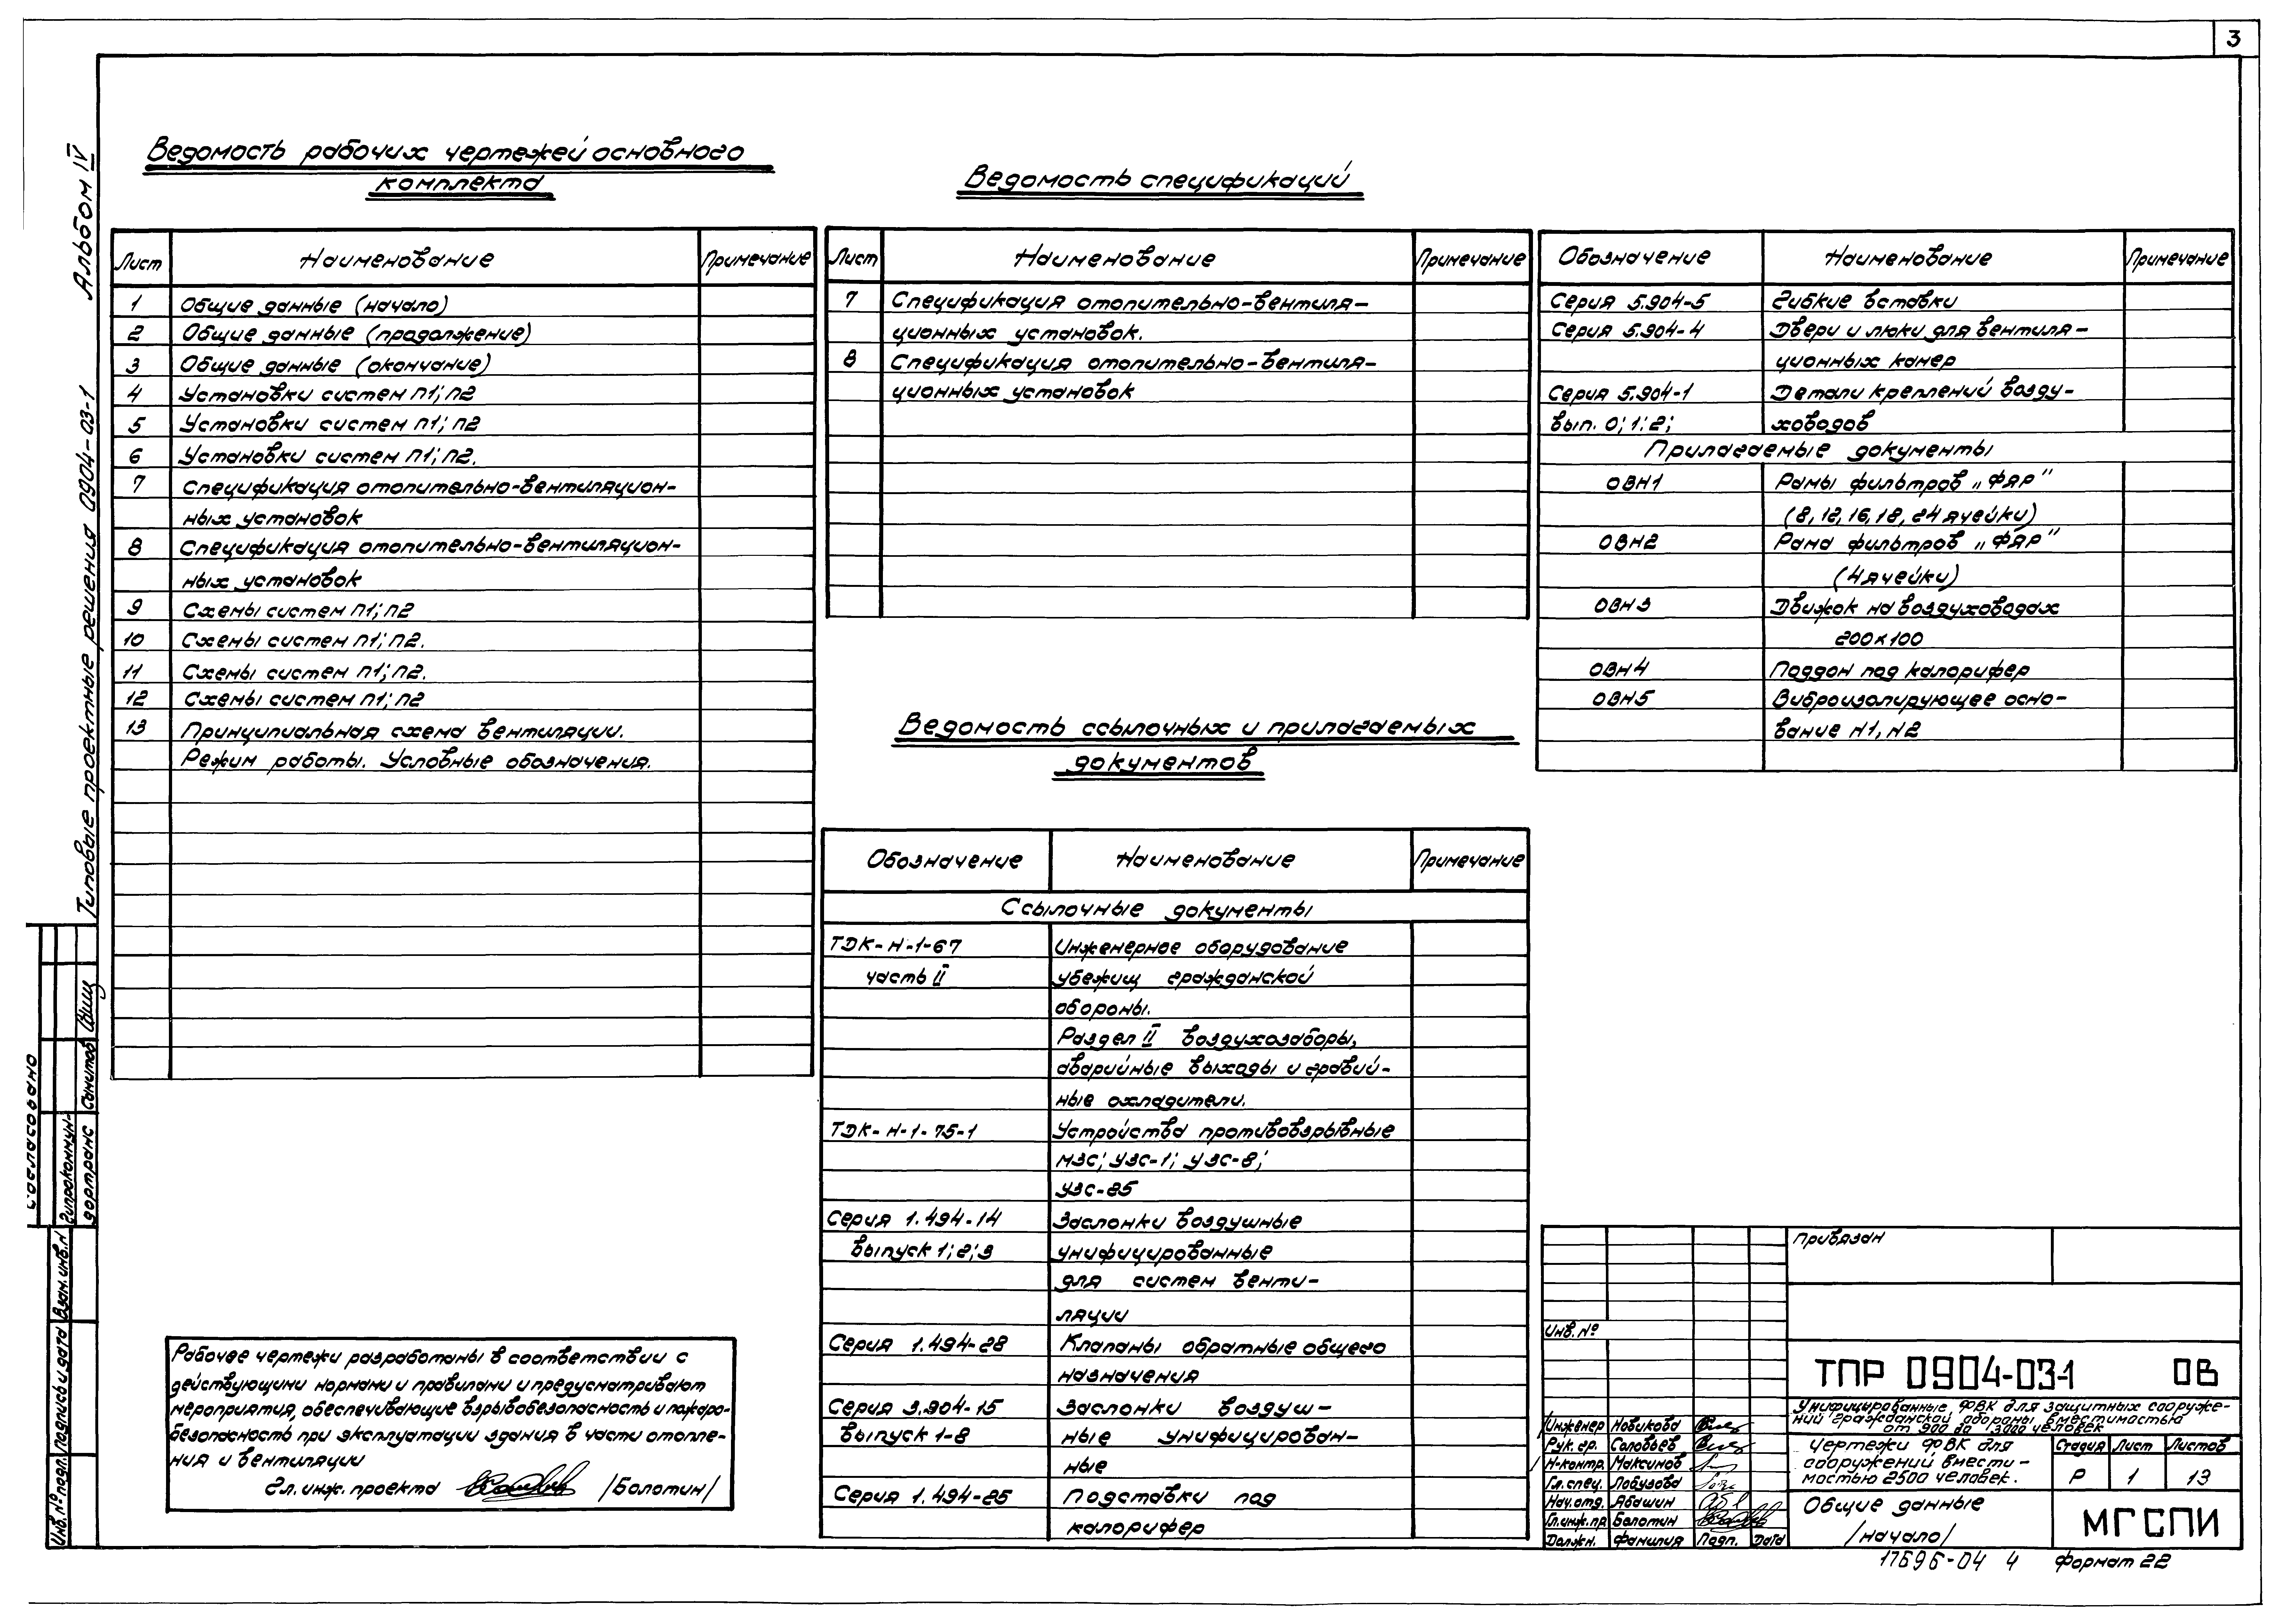 3
Альбом IV
Типовые проектные решения 0904-03-1
Ведомость рабочих чертежей основного
комплекта
Лист Наименование Примечание
1 Общие данные (начало)
2 Общие данные (продолжение)
3 Общие данные (окончание)
4 Установки систем П1; П2
5 Установки систем П1; П2
6 Установки систем П1; П2.
7 Спецификация отопительно-вентиляцион-
ных установок
8 Спецификация отопительно-вентиляцион-
ных установок
9 Схемы систем П1; П2
10 Схемы систем П1; П2.
11 Схемы систем П1; П2.
12 Схемы систем П1; П2
13 Принципиальная схема вентиляции.
Режим работы. Условные обозначения.
Ведомость спецификаций
Лист Наименование Примечание
7 Спецификация отопительно-вентиля-
ционных установок.
8 Спецификация отопительно-вентиля-
ционных установок
Ведомость ссылочных и прилагаемых
документов
Обозначение Наименование Примечание
Ссылочные документы
ТДК-Н-1-67 Инженерное оборудование
часть II убежищ гражданской
обороны.
Раздел II воздухозаборы,
аварийные выходы и гравий-
ные охладители.
ТДК-Н-1-75-1 Устройства противовзрывные
МЗС; УЗС-1; УЗС-8;
УЗС-25
Серия 1.494-14 Заслонки воздушные
выпуск 1; 2; 3 унифицированные
для систем венти-
ляции
Серия 1.494-28 Клапаны обратные общего
назначения
Серия 3.904-15 Заслонки воздуш-
выпуск 1-8 ные унифицирован-
ные
Серия 1.494-25 Подставки под
калорифер
Обозначение Наименование Примечание
Серия 5.904-5 Гибкие вставки
Серия 5.904-4 Двери и люки для вентиля-
ционных камер
Серия 5.904-1 Детали креплений возду-
вып. 0; 1; 2; ховодов
Прилагаемые документы
ОВН1 Рамы фильтров „ФЯР"
(8, 12, 16, 18, 24 ячейки)
ОВН2 Рама фильтров „ФЯР"
(4 ячейки)
ОВН3 Движок на воздуховодах
200х100
ОВН4 Поддон под калорифер
ОВН5 Виброизолирующее осно-
вание N1, N2
Рабочее чертежи разработаны в соответствии с
действующими нормами и правилами и предусматривают
мероприятия, обеспечивающие взрывобезопасность и пожаро-
безопасность при эксплуатации здания в части отопле-
ния и вентиляции
Гл. инж. проекта /Болотин/
Согласовано
Гипрокоммун-
дортранс
Инв. № подл. Подпись и дата Взам. инв. N
Привязан
Инв. №
ТПР 0904-03-1 ОВ
Унифицированные ФВК для защитных сооруже-
ний гражданской обороны вместимостью
от 900 до 3000 человек
Инженер Новикова
Рук. гр. Соловьев
Н-контр. Максимов
Гл. спец. Лобузова
Нач. отд. Абашин
Гл. инж. пр Болотин
Должн. Фамилия Подп. Дата
Чертежи ФВК для
сооружений вмести-
мостью 2500 человек.
Стадия Лист Листов
Р 1 13
Общие данные
/начало/
МГСПИ
17696-04 4 Формат 22